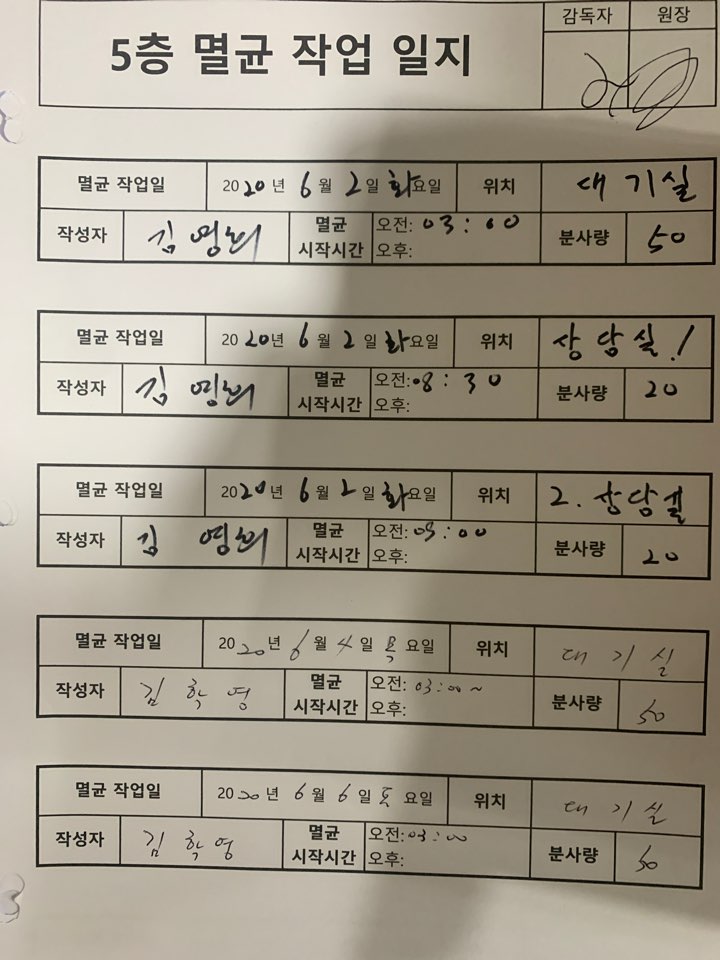 5층 멸균 작업 일지
감독자 원장
멸균 작업일 2020년 6월 2일 화요일 위치 대기실
작성자 김영희 멸균 시작시간 오전: 03:00 오후: 분사량 50
멸균 작업일 2020년 6월 2일 화요일 위치 상담실1
작성자 김영희 멸균 시작시간 오전: 08:30 오후: 분사량 20
멸균 작업일 2020년 6월 2일 화요일 위치 2. 상담실
작성자 김영희 멸균 시작시간 오전: 09:00 오후: 분사량 20
멸균 작업일 2020년 6월 4일 목요일 위치 대기실
작성자 김학영 멸균 시작시간 오전: 03:00~ 오후: 분사량 50
멸균 작업일 2020년 6월 6일 토요일 위치 대기실
작성자 김학영 멸균 시작시간 오전: 03:00 오후: 분사량 50